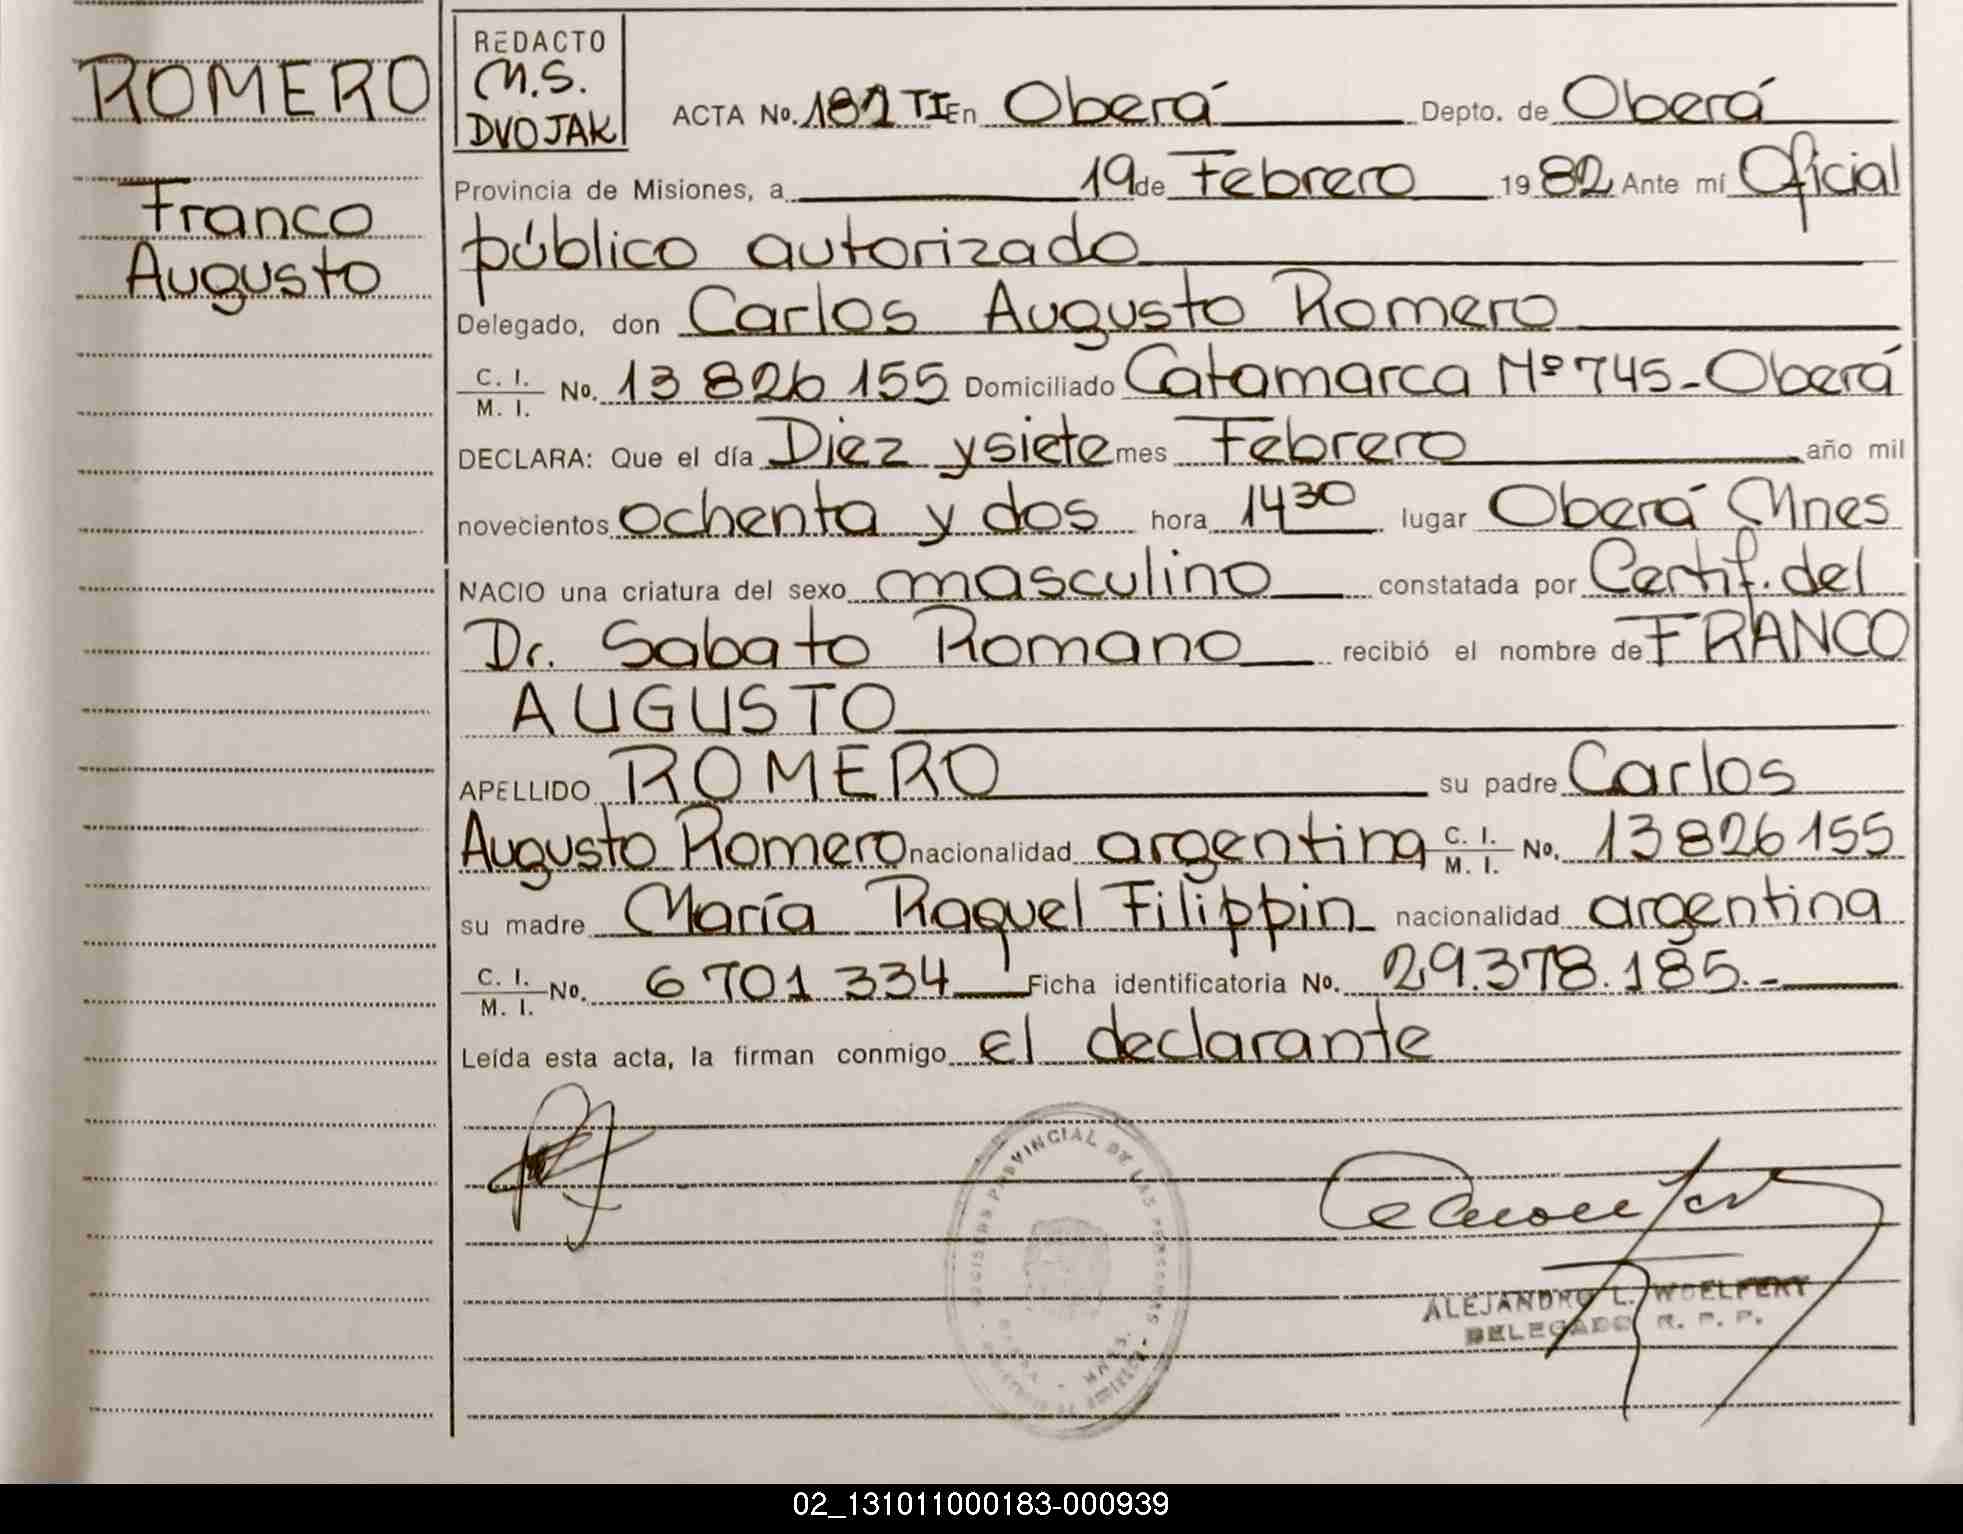 ROMERO
Franco
Augusto
REDACTO
M.S.
DVOJAK
ACTA No. 182 TI En Oberá Depto. de Oberá
Provincia de Misiones, a 19 de Febrero 1982 Ante mí Oficial
público autorizado
Delegado, don Carlos Augusto Romero
C. I. / M. I. No. 13 826 155 Domiciliado Catamarca Nº 745-Oberá
DECLARA: Que el día Diez y siete mes Febrero año mil
novecientos ochenta y dos hora 14 30 lugar Oberá Mnes
NACIO una criatura del sexo masculino constatada por Certif. del
Dr. Sabato Romano recibió el nombre de FRANCO
AUGUSTO
APELLIDO ROMERO su padre Carlos
Augusto Romero nacionalidad argentina C. I. / M. I. No. 13 826 155
su madre María Raquel Filippin nacionalidad argentina
C. I. / M. I. No. 6 701 334 Ficha identificatoria No. 29.378.185.-
Leída esta acta, la firman conmigo el declarante
PROVINCIAL DE LAS PERSONAS
ALEJANDRO L. WOELFERT
DELEGADO R. P. P.
02_131011000183-000939